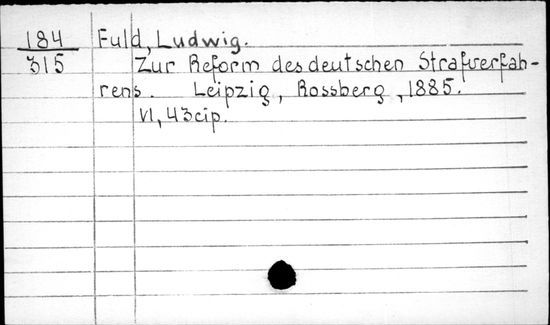 184 Fuld, Ludwig.
315 Zur Reform des deutschen Strafverfah-
rens. Leipzig, Rossberg, 1885.
VI, 43cip.